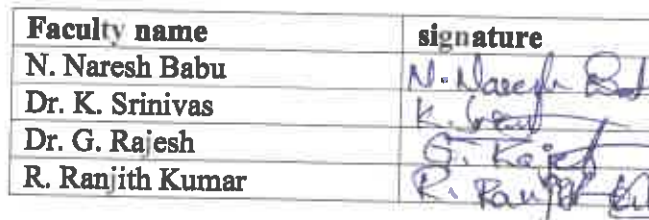 Faculty name signature
N. Naresh Babu N. Naresh Bab
Dr. K. Srinivas K.
Dr. G. Rajesh G. Rajesh
R. Ranjith Kumar R. Ranjith